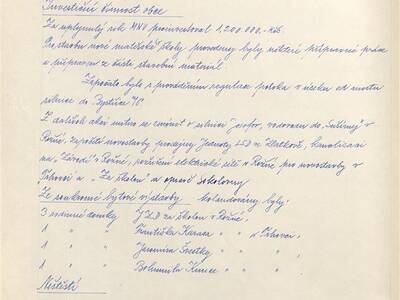 Investiční činnost obce
Za uplynulý rok MNV proinvestoval 1,200.000.- Kčs.
Pro stavbu nové mateřské školy provedeny byly některé přípravné práce
a připraven z části stavební materiál.
Započato bylo s prováděním regulace potoka v úseku od mostu
silnice do Bystřice n/P.
Z dalších akcí nutno se zmínit o silnici " ", vodovodu do " " v
Rožné, započetí novostavby prodejny Jednoty LSD ve Zlatkově, kanalizaci
na "Závodí" v Rožné, rozšíření elektrické sítě v Rožné pro novostavby v
" " a "Za školou" a opravě Sokolovny
Ze soukromé bytové výstavby kolaudovány byly:
3 rodinné domky JZD za školou v Rožné.
1 " " Františka Karasa " v
1 " " Jaromíra " " "
1 " " Bohumila " " "
Náštěstí